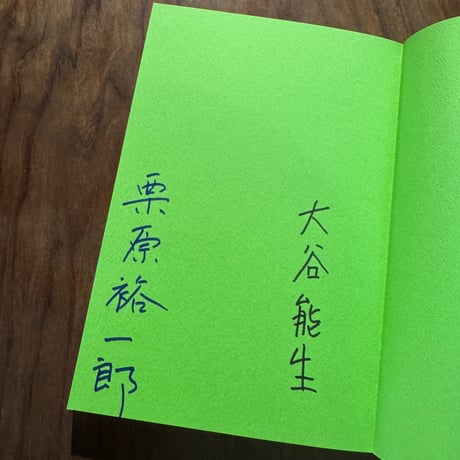 大谷能生
栗原裕一郎